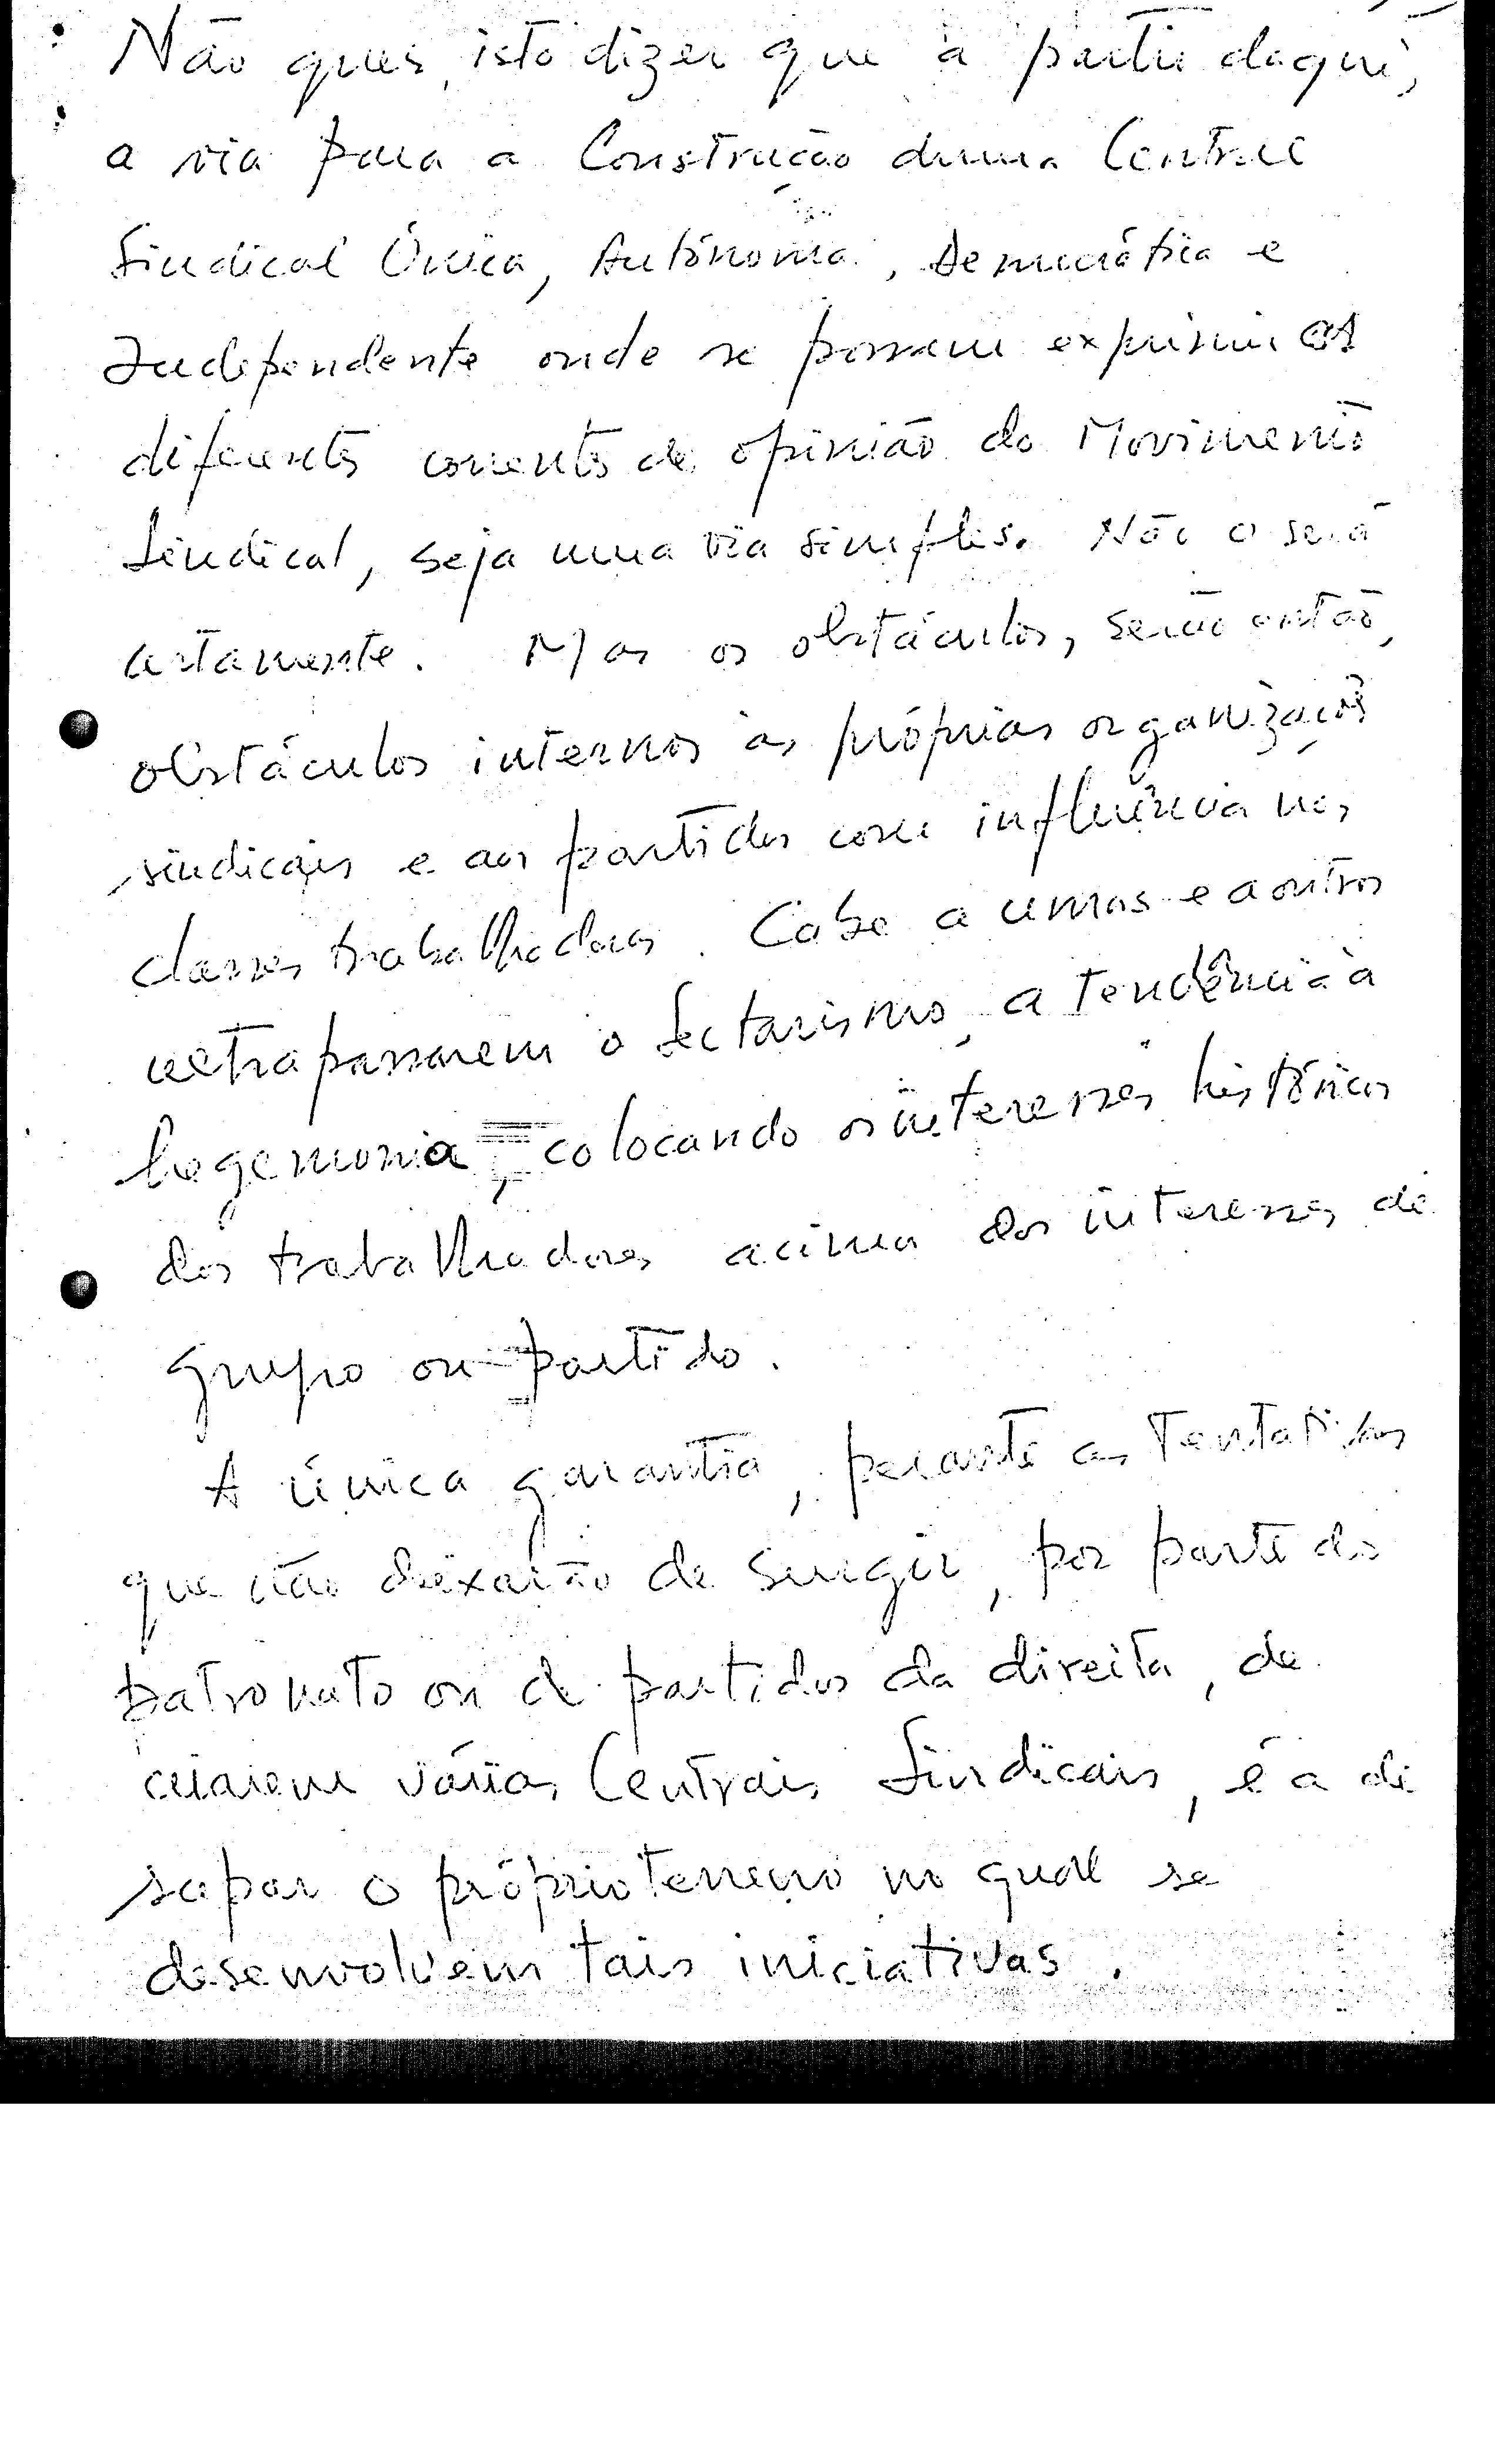 Não quer, isto dizer que a partir daqui,
a via para a Construção duma Central
Sindical Única, Autónoma, Democrática e
Independente onde se possam exprimir as
diferentes correntes de opinião do Movimento
Sindical, seja uma via simples. Não o será
certamente. Mas os obstáculos, serão então,
obstáculos internos às próprias organizações
sindicais e aos partidos com influência nas
classes trabalhadoras. Cabe a umas e a outros
ultrapassarem o sectarismo, a tendência à
hegemonia, colocando os interesses históricos
dos trabalhadores acima dos interesses de
grupo ou partido.
A única garantia, perante as tentativas
que não deixarão de surgir, por parte do
patronato ou de partidos da direita, de
criarem várias Centrais Sindicais, é a de
sapar o próprio terreno no qual se
desenvolvem tais iniciativas.